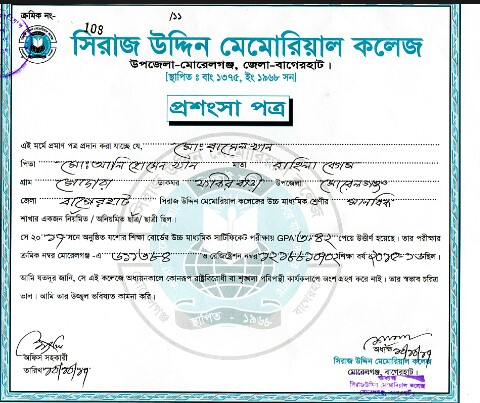 ক্রমিক নং- 108 /১১
সিরাজ উদ্দিন মেমোরিয়াল কলেজ
উপজেলা-মোরেলগঞ্জ, জেলা-বাগেরহাট।
[স্থাপিত : বাং ১৩৭৫, ইং ১৯৬৮ সন]
প্রশংসা পত্র
এই মর্মে প্রমাণ পত্র প্রদান করা যাচ্ছে যে, মোঃ রাসেল খান
পিতা মোঃ আলি হোসেন খান মাতা রাহিলা বেগম
গ্রাম ডাকঘর উপজেলা মোরেলগঞ্জ
জেলা বাগেরহাট সিরাজ উদ্দিন মেমোরিয়াল কলেজের উচ্চ মাধ্যমিক শ্রেণীর মানবিক
শাখার একজন নিয়মিত / অনিয়মিত ছাত্র/ ছাত্রী ছিল।
সে ২০১৭ সনে অনুষ্ঠিত যশোর শিক্ষা বোর্ডের উচ্চ মাধ্যমিক সার্টিফিকেট পরীক্ষায় GPA ৩.৪২ পেয়ে উত্তীর্ণ হয়েছে। তার পরীক্ষার
ক্রমিক নম্বর মোরেলগঞ্জ -এ ও রেজিষ্ট্রেশন নম্বর শিক্ষা বর্ষ ছিল।
আমি যতদুর জানি, সে এই কলেজে অধ্যয়নকালে কোনরূপ রাষ্ট্রবিরোধী বা শৃঙ্খলা পরিপন্থী কার্যকলাপে অংশ গ্রহণ করে নাই। তার স্বভাব চরিত্র
ভাল। আমি তার উজ্জ্বল ভবিষ্যত কামনা করি।
সিরাজ উদ্দিন মেমোরিয়াল কলেজ
স্থাপিত - ১৯৬৮
বাগেরহাট
অফিস সহকারী
তারিখ
অধ্যক্ষ
সিরাজ উদ্দিন মেমোরিয়াল কলেজ
মোরেলগঞ্জ, বাগেরহাট।
অধ্যক্ষ
সিরাজ উদ্দিন মেমোরিয়াল কলেজ